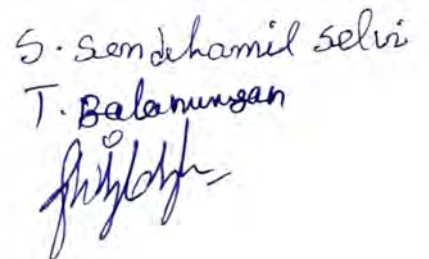 S. Sendehamil selvi
T. Balamurugan